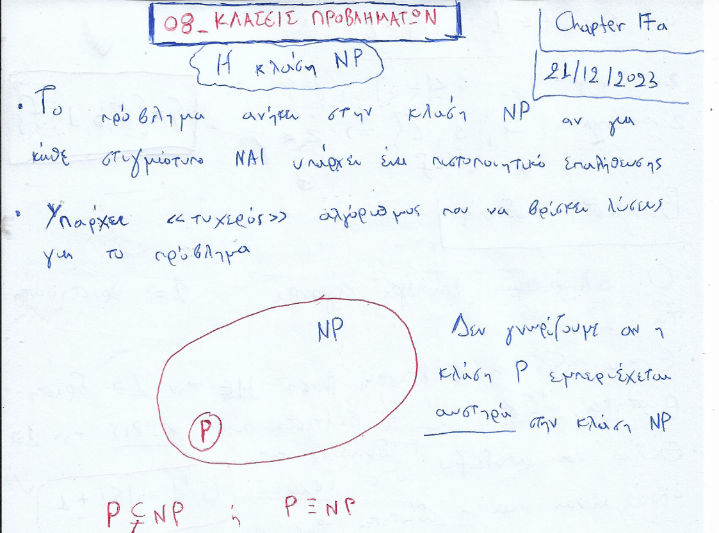 08_ΚΛΑΣΕΙΣ ΠΡΟΒΛΗΜΑΤΩΝ
Chapter 17a
21/12/2023
Η κλάση NP
• Το πρόβλημα ανήκει στην κλάση NP αν για
κάθε στιγμιότυπο ΝΑΙ υπάρχει ένα πιστοποιητικό επαλήθευσης
• Υπάρχει <<τυχερός>> αλγόριθμος που να βρίσκει λύσεις
για το πρόβλημα
NP
P
Δεν γνωρίζουμε αν η
κλάση P εμπεριέχεται
αυστηρά στην κλάση NP
P ⊊ NP ή P ≡ NP